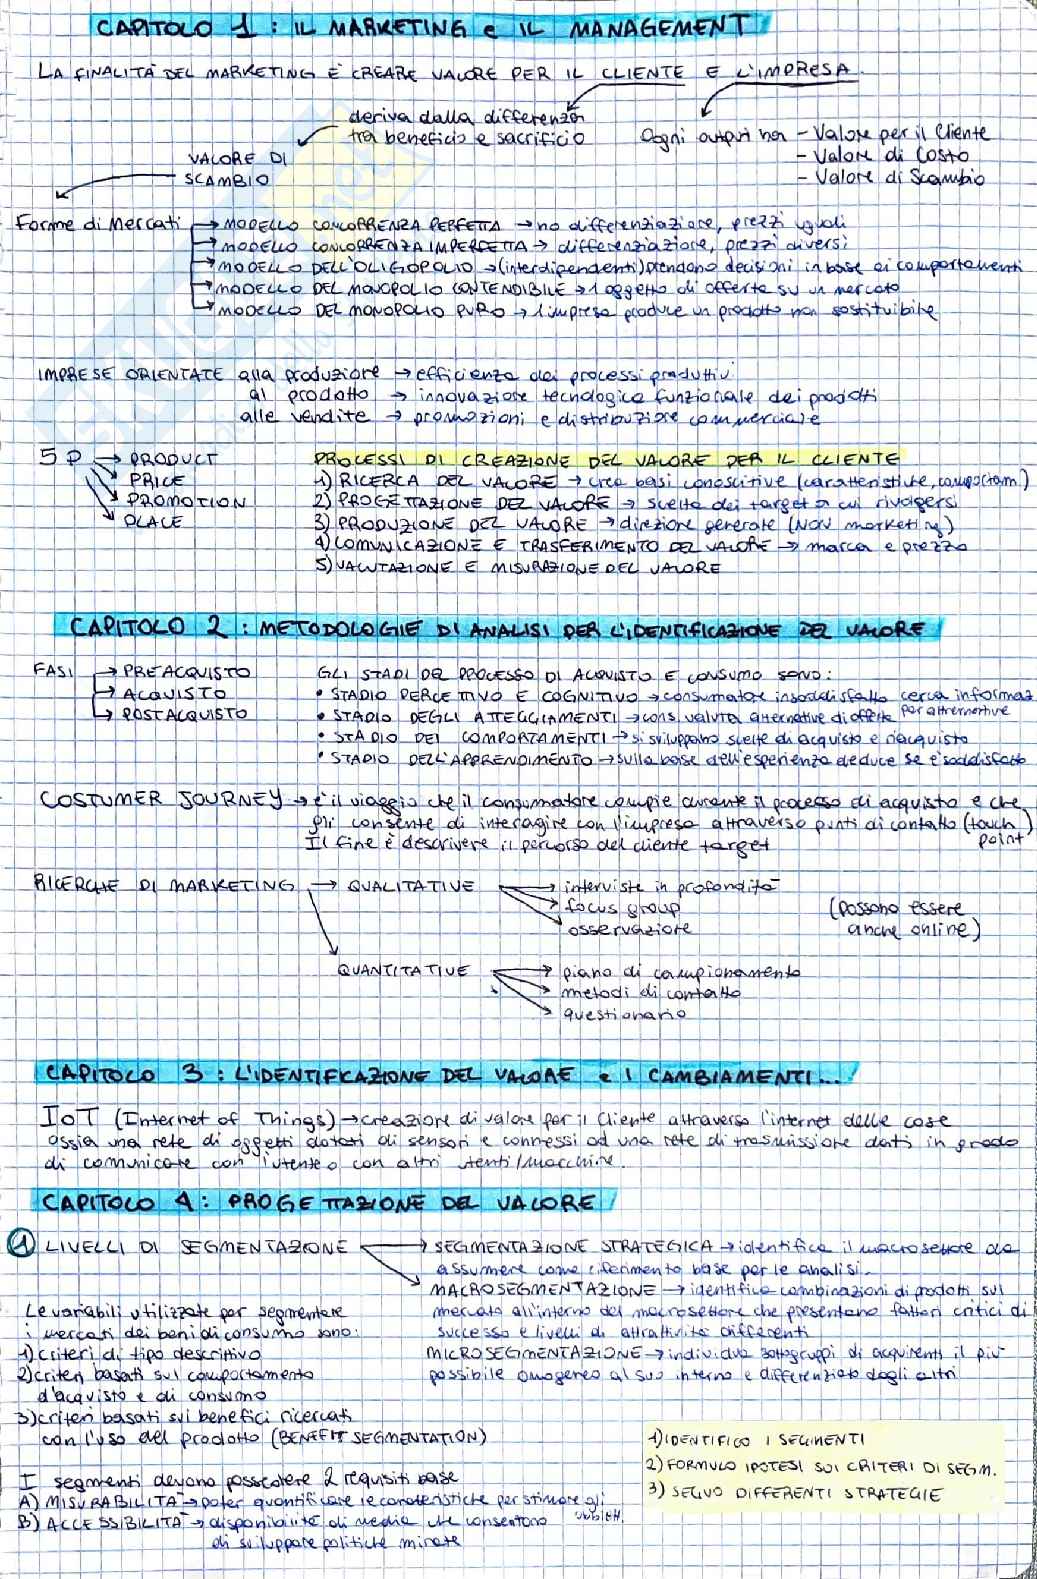 CAPITOLO 1 : IL MARKETING e IL MANAGEMENT
LA FINALITÀ DEL MARKETING È CREARE VALORE PER IL CLIENTE E L'IMPRESA
deriva dalla differenza
tra beneficio e sacrificio
Ogni output ha - Valore per il Cliente
- Valore di Costo
- Valore di Scambio
VALORE DI
SCAMBIO
Forme di Mercati → MODELLO CONCORRENZA PERFETTA → no differenziazione, prezzi uguali
→ MODELLO CONCORRENZA IMPERFETTA → differenziazione, prezzi diversi
→ MODELLO DELL'OLIGOPOLIO → (interdipendenti) prendono decisioni in base ai comportamenti
→ MODELLO DEL MONOPOLIO CONTENDIBILE → 1 oggetto di offerta su un mercato
→ MODELLO DEL MONOPOLIO PURO → l'impresa produce un prodotto non sostituibile
IMPRESE ORIENTATE alla produzione → efficienza dei processi produttivi
al prodotto → innovazione tecnologica funzionale dei prodotti
alle vendite → promozioni e distribuzione commerciale
5 P → PRODUCT
PRICE
PROMOTION
PLACE
PROCESSI DI CREAZIONE DEL VALORE PER IL CLIENTE
1) RICERCA DEL VALORE → crea basi conoscitive (caratteristiche, comportam.)
2) PROGETTAZIONE DEL VALORE → scelta dei target a cui rivolgersi
3) PRODUZIONE DEL VALORE → direzione generale (NON marketing)
4) COMUNICAZIONE E TRASFERIMENTO DEL VALORE → marca e prezzo
5) VALUTAZIONE E MISURAZIONE DEL VALORE
CAPITOLO 2 : METODOLOGIE DI ANALISI PER L'IDENTIFICAZIONE DEL VALORE
FASI → PREACQUISTO
→ ACQUISTO
→ POSTACQUISTO
GLI STADI DEL PROCESSO DI ACQUISTO E CONSUMO SONO:
• STADIO PERCETIVO E COGNITIVO → consumatore insoddisfatto cerca informaz
per alternative
• STADIO DEGLI ATTEGGIAMENTI → cons. valuta alternative di offerta
• STADIO DEI COMPORTAMENTI → si sviluppano scelte di acquisto e riacquisto
• STADIO DELL'APPRENDIMENTO → sulla base dell'esperienza deduce se è soddisfatto
COSTUMER JOURNEY → è il viaggio che il consumatore compie durante il processo di acquisto e che
gli consente di interagire con l'impresa attraverso punti di contatto (touch
point)
Il fine è descrivere il percorso del cliente target
RICERCHE DI MARKETING → QUALITATIVE → interviste in profondità
→ focus group
→ osservazione
(possono essere
anche online)
QUANTITATIVE → piano di campionamento
→ metodi di contatto
→ questionario
CAPITOLO 3 : L'IDENTIFICAZIONE DEL VALORE e I CAMBIAMENTI...
IoT (Internet of Things) → creazione di valore per il Cliente attraverso l'internet delle cose
ossia una rete di oggetti dotati di sensori e connessi ad una rete di trasmissione dati in grado
di comunicare con l'utente o con altri utenti/macchine.
CAPITOLO 4 : PROGETTAZIONE DEL VALORE
1 LIVELLI DI SEGMENTAZIONE → SEGMENTAZIONE STRATEGICA → identifica il macrosettore da
assumere come riferimento base per le analisi.
MACROSEGMENTAZIONE → identifica combinazioni di prodotti sul
mercato all'interno del macrosettore che presentano fattori critici di
successo e livelli di attrattività differenti
MICROSEGMENTAZIONE → individua sottogruppi di acquirenti il più
possibile omogeneo al suo interno e differenziato dagli altri
Le variabili utilizzate per segmentare
i mercati dei beni di consumo sono:
1) criteri di tipo descrittivo
2) criteri basati sul comportamento
d'acquisto e di consumo
3) criteri basati sui benefici ricercati
con l'uso del prodotto (BENEFIT SEGMENTATION)
1) IDENTIFICO I SEGMENTI
2) FORMULO IPOTESI SUI CRITERI DI SEGM.
3) SEGUO DIFFERENTI STRATEGIE
I segmenti devono possedere 2 requisiti base
A) MISURABILITÀ → poter quantificare le caratteristiche per stimare gli
obbiett.
B) ACCESSIBILITÀ → disponibilità di media che consentono
di sviluppare politiche mirate